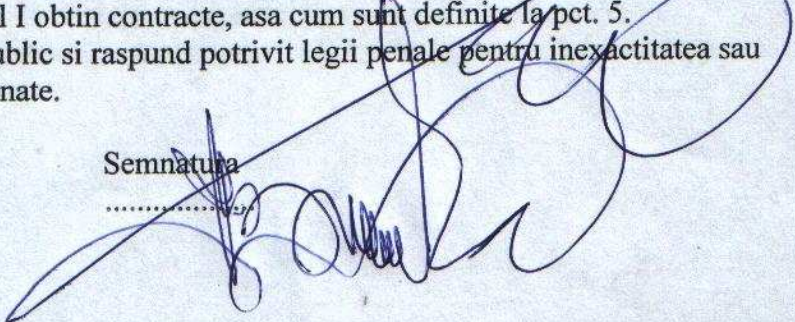 l I obtin contracte, asa cum sunt definite la pct. 5.
ublic si raspund potrivit legii penale pentru inexactitatea sau
nate.
Semnatura
....................